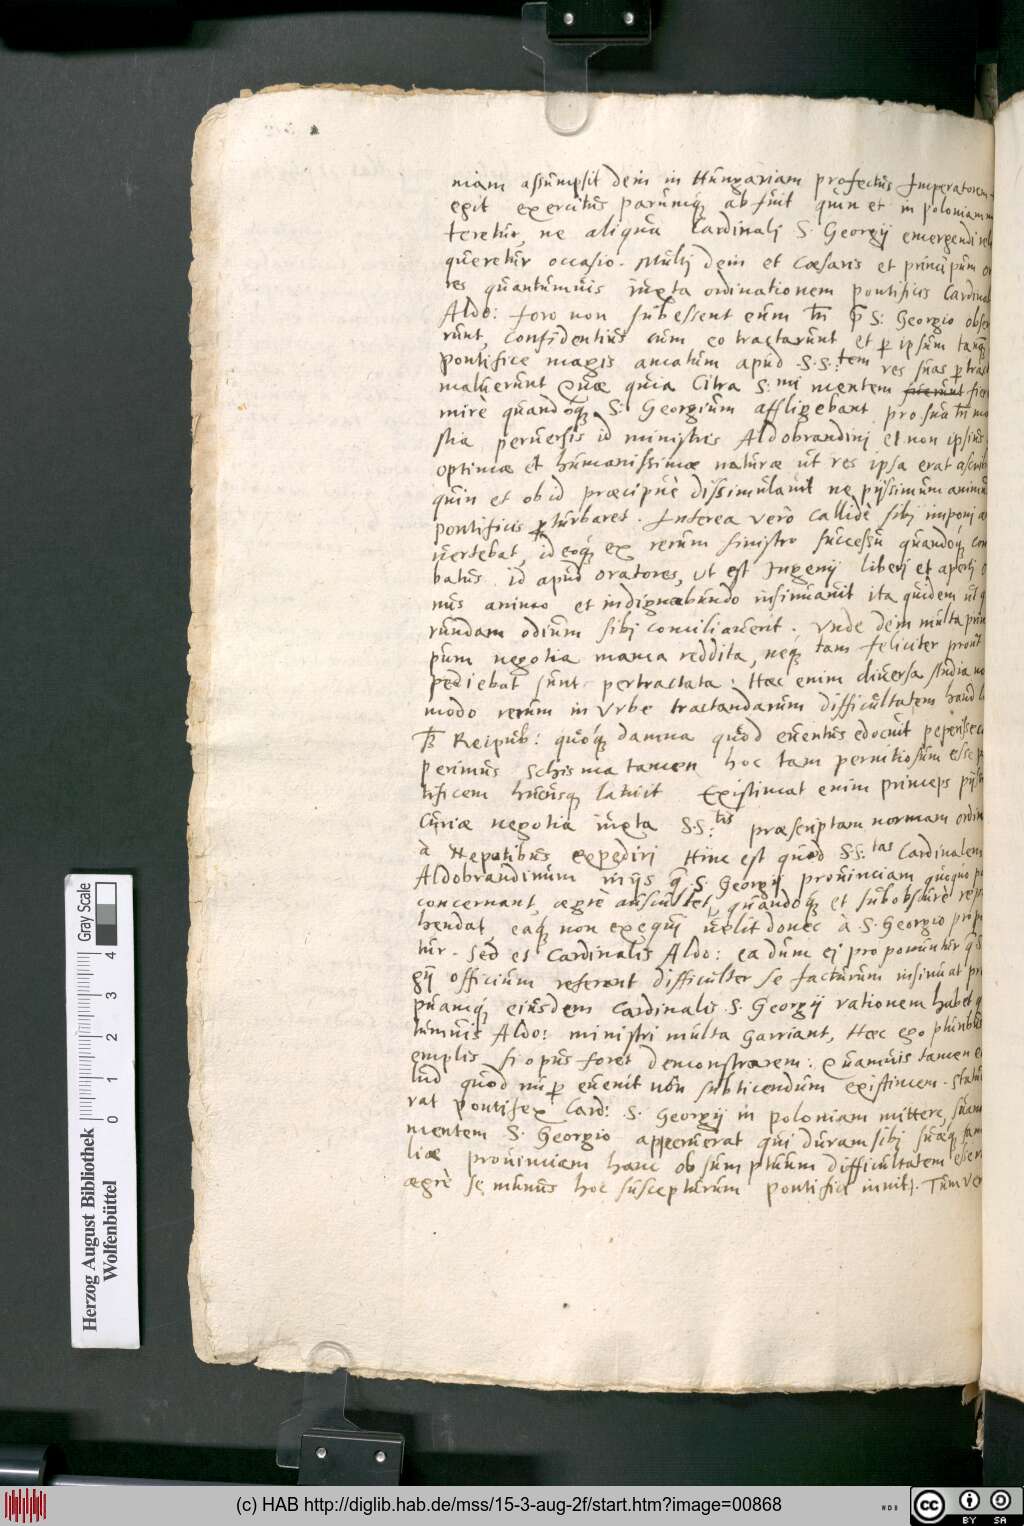 niam assumpsit dein in Hungariam profectus Imperatorem
egit exercitus parumq; abfuit quin et in poloniam
teretur, ne aliqua Cardinali S. Georgij emergendi
quereretur occasio. Multi dein et Cæsaris et principum
res quantumvis iuxta ordinationem pontificis Cardinal
Aldo: foro non subessent eum tn̄ S: Georgio obser
runt, confidentius cum eo tractarunt et p ipsum tanq;
pontifice magis amatum apud S.S.tem res suas p tract
maluerunt Quæ quia Citra S: mi mentem fuerunt fier
mirè quandoq; S: Georgium affligebant pro sua tn̄ mo
stia perversis id ministris Aldobrandini et non ipsius
optimæ et humanissimæ naturæ ut res ipsa erat ascrib
quin et ob id præcipuè dissimulavit ne pijssimum animum
pontificis pturbaret. Interea vero Callidè sibi imponi a
vertebat, ideoq; ex rerum sinistro successu quandoq; con
batus id apud oratores, ut est Ingenij liberi et aperti
nus animo et indignabundo insinuavit ita quidem ut q
rundam odium sibi conciliaverit. Unde dein multa prin
pum negotia manca reddita, neq; tam feliciter prout
pediebat sunt pertractata: Hæc enim diversa studia no
modo rerum in Urbe tractandarum difficultatem haud l
Reipub: quoq; damna quod eventus edocuit peperisse
perimus schisma tamen hoc tam pernitiosum esse p
tificem hucusq; latuit Existimat enim princeps pijs
Curiæ negotia iuxta S.S:tis præscriptam normam ordin
à Nepotibus expediri Hinc est quod S.S:tas Cardinalem
Aldobrandinum in ijs S Georgij provinciam quoquo
concernunt, ægrè auscultet, quandoq; et subobscurè rep
hendat, eaq; non exequi velit donec à S. Georgio prop
tur. Sed et Cardinalis Aldo: ea dum ei proponuntur
gij officium referant difficulter se facturum insinuat pr
puamq; eiusdem Cardinalis S. Georgij rationem habet q
tumvis Aldo: ministri multa garriant, Hæc ego pluribus
emplis si opus foret demonstrarem: Quamvis tamen
lud quod nup evenit non subticendum existimem. Statu
rat pontifex Card: S. Georgij in poloniam mittere, suam
mentem S. Georgio aperuerat qui duram sibi suæq; fam
liæ provinciam hanc ob sumptuum difficultatem
ægrè se munus hoc suscepturum pontifici innuit. Tum ve
Herzog August Bibliothek
Wolfenbüttel
0 1 2 3 4
Gray Scale
(c) HAB http://diglib.hab.de/mss/15-3-aug-2f/start.htm?image=00868
WDB
cc BY SA